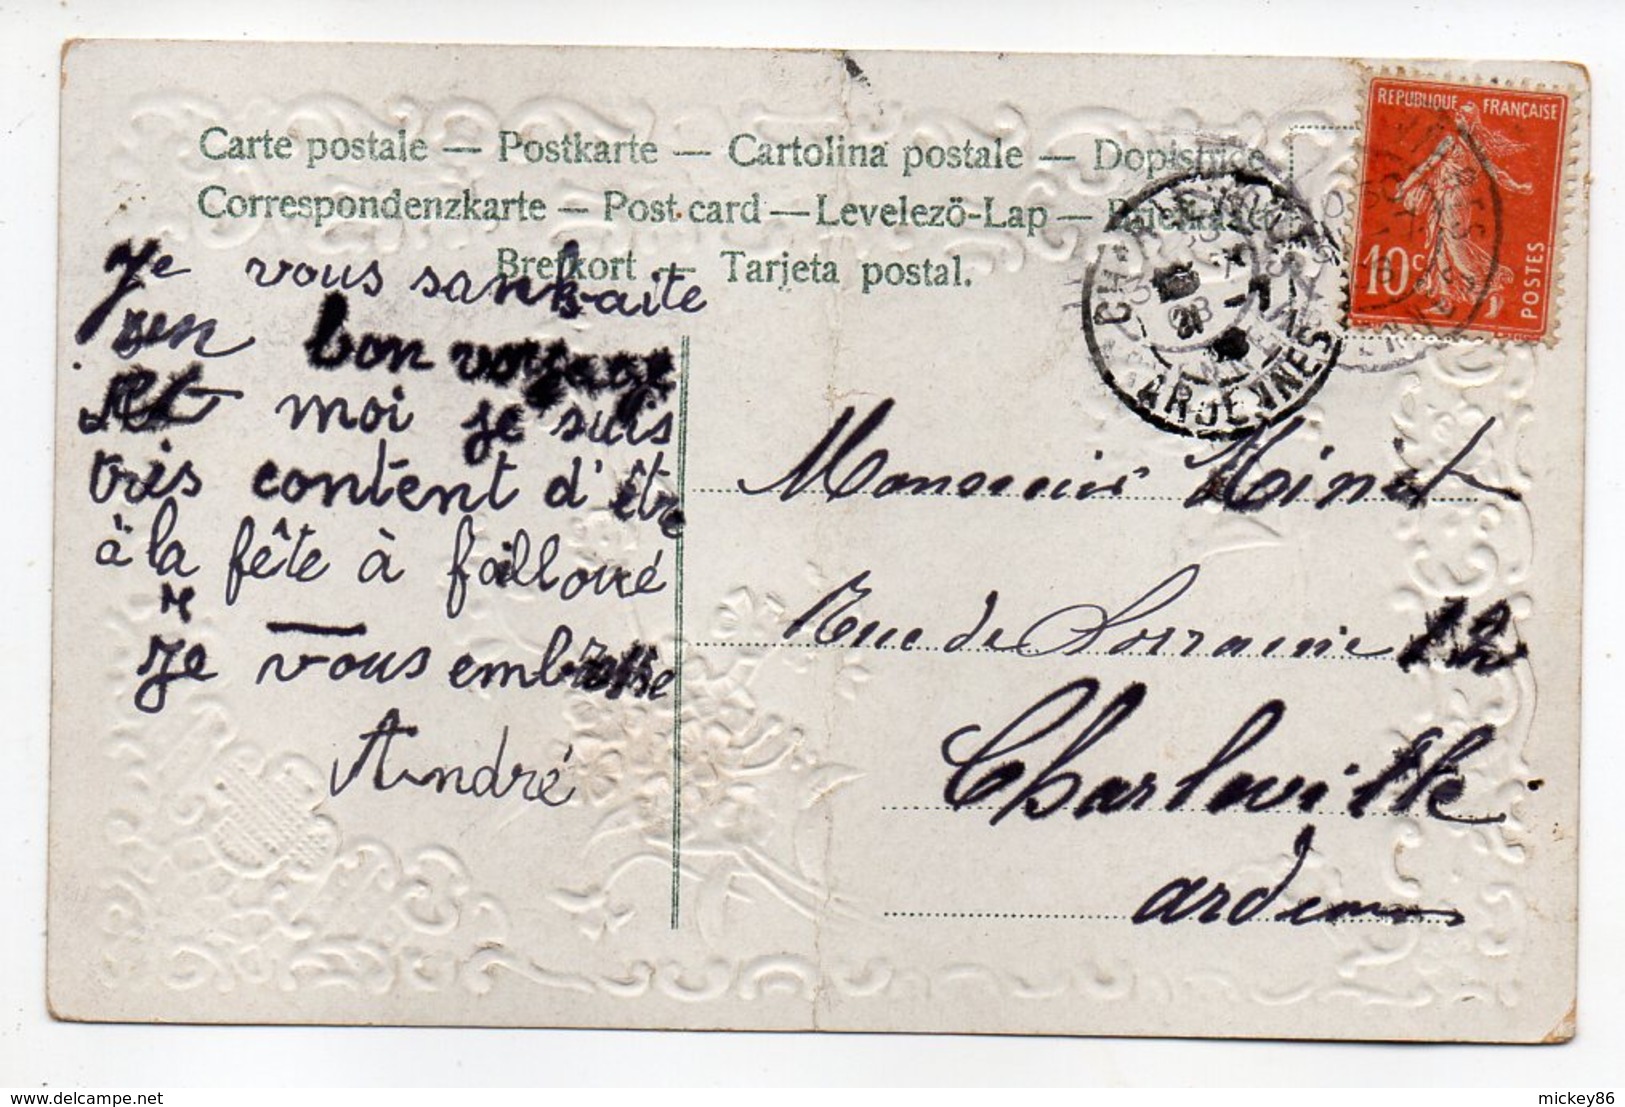 Carte postale — Postkarte — Cartolina postale — Dopisnice
Correspondenzkarte — Post card — Levelezö-Lap —
Brefkort — Tarjeta postal.
REPUBLIQUE FRANÇAISE
10c
POSTES
CHARLEVILLE
ARDENNES
Je vous sauhaite
un bon voyage
et moi je suis
tris content d'être
à la fête à failloué
Je vous embrasse
André
Monsieur Minet
Rue de Lorraine 12
Charleville
ardennes
www.delcampe.net
mickey86